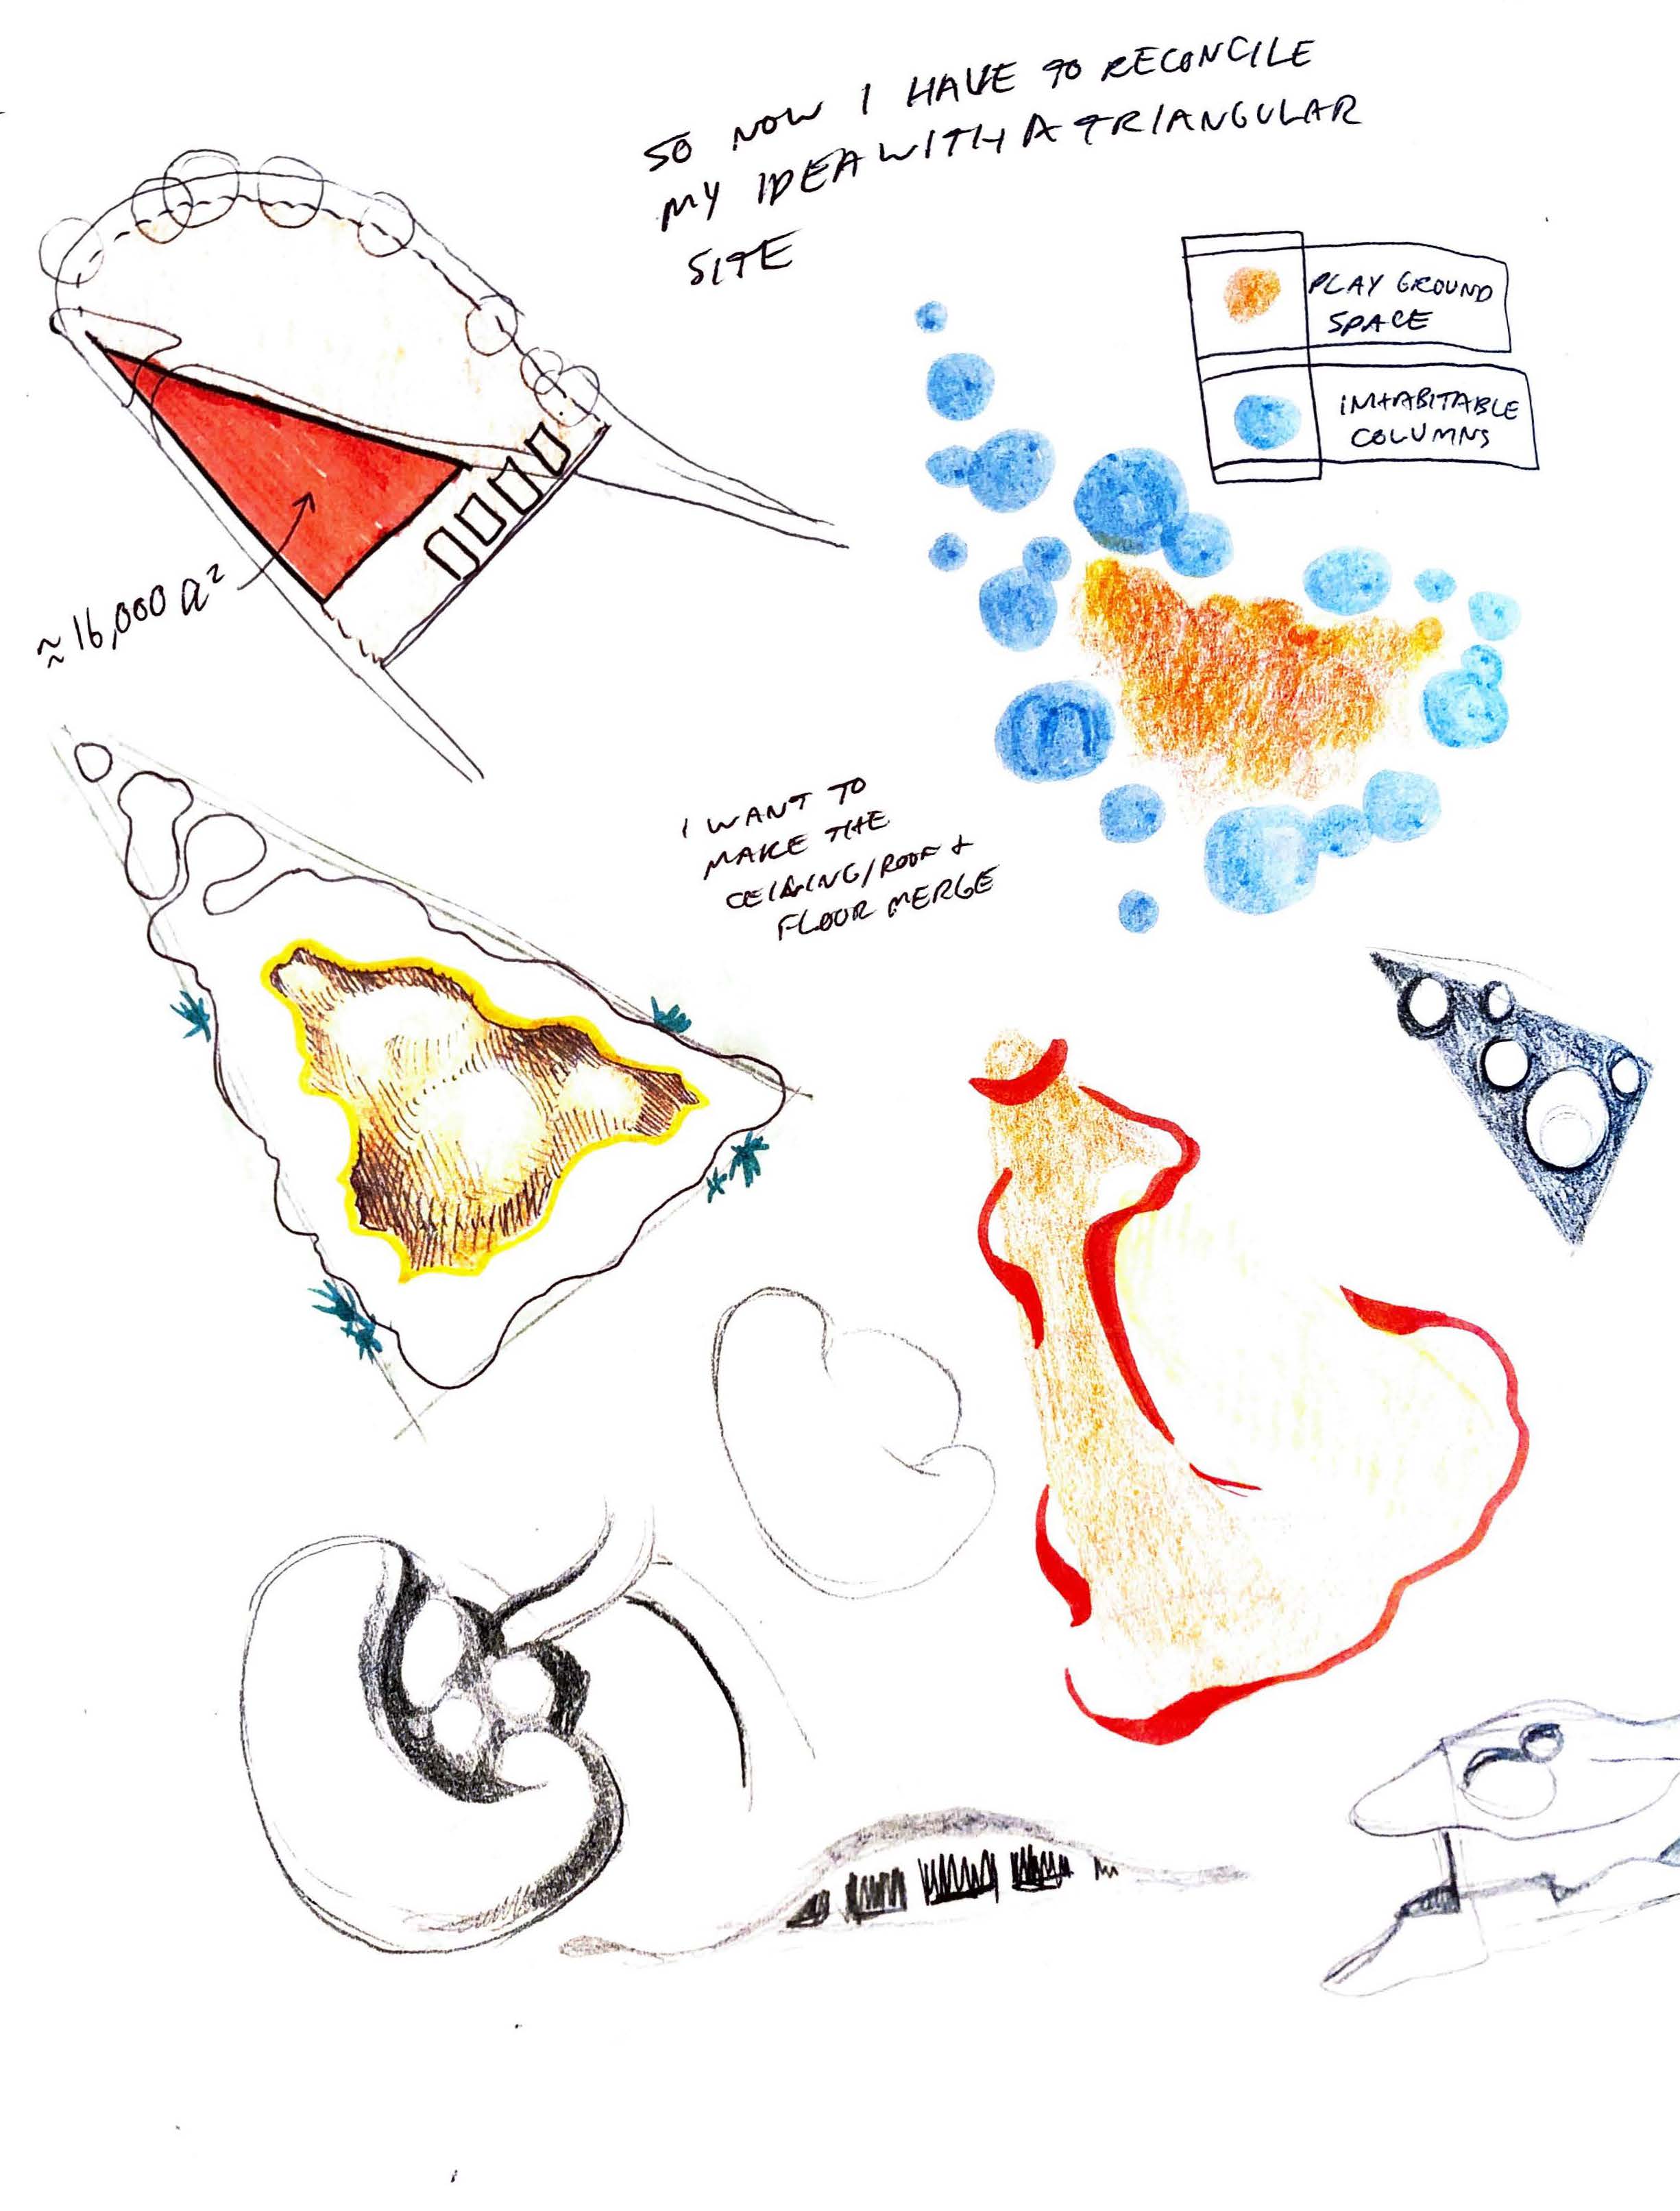 SO NOW I HAVE TO RECONCILE
MY IDEA WITH A TRIANGULAR
SITE
PLAY GROUND
SPACE
INHABITABLE
COLUMNS
≈16,000
I WANT TO
MAKE THE
CEILING/ROOF +
FLOOR MERGE